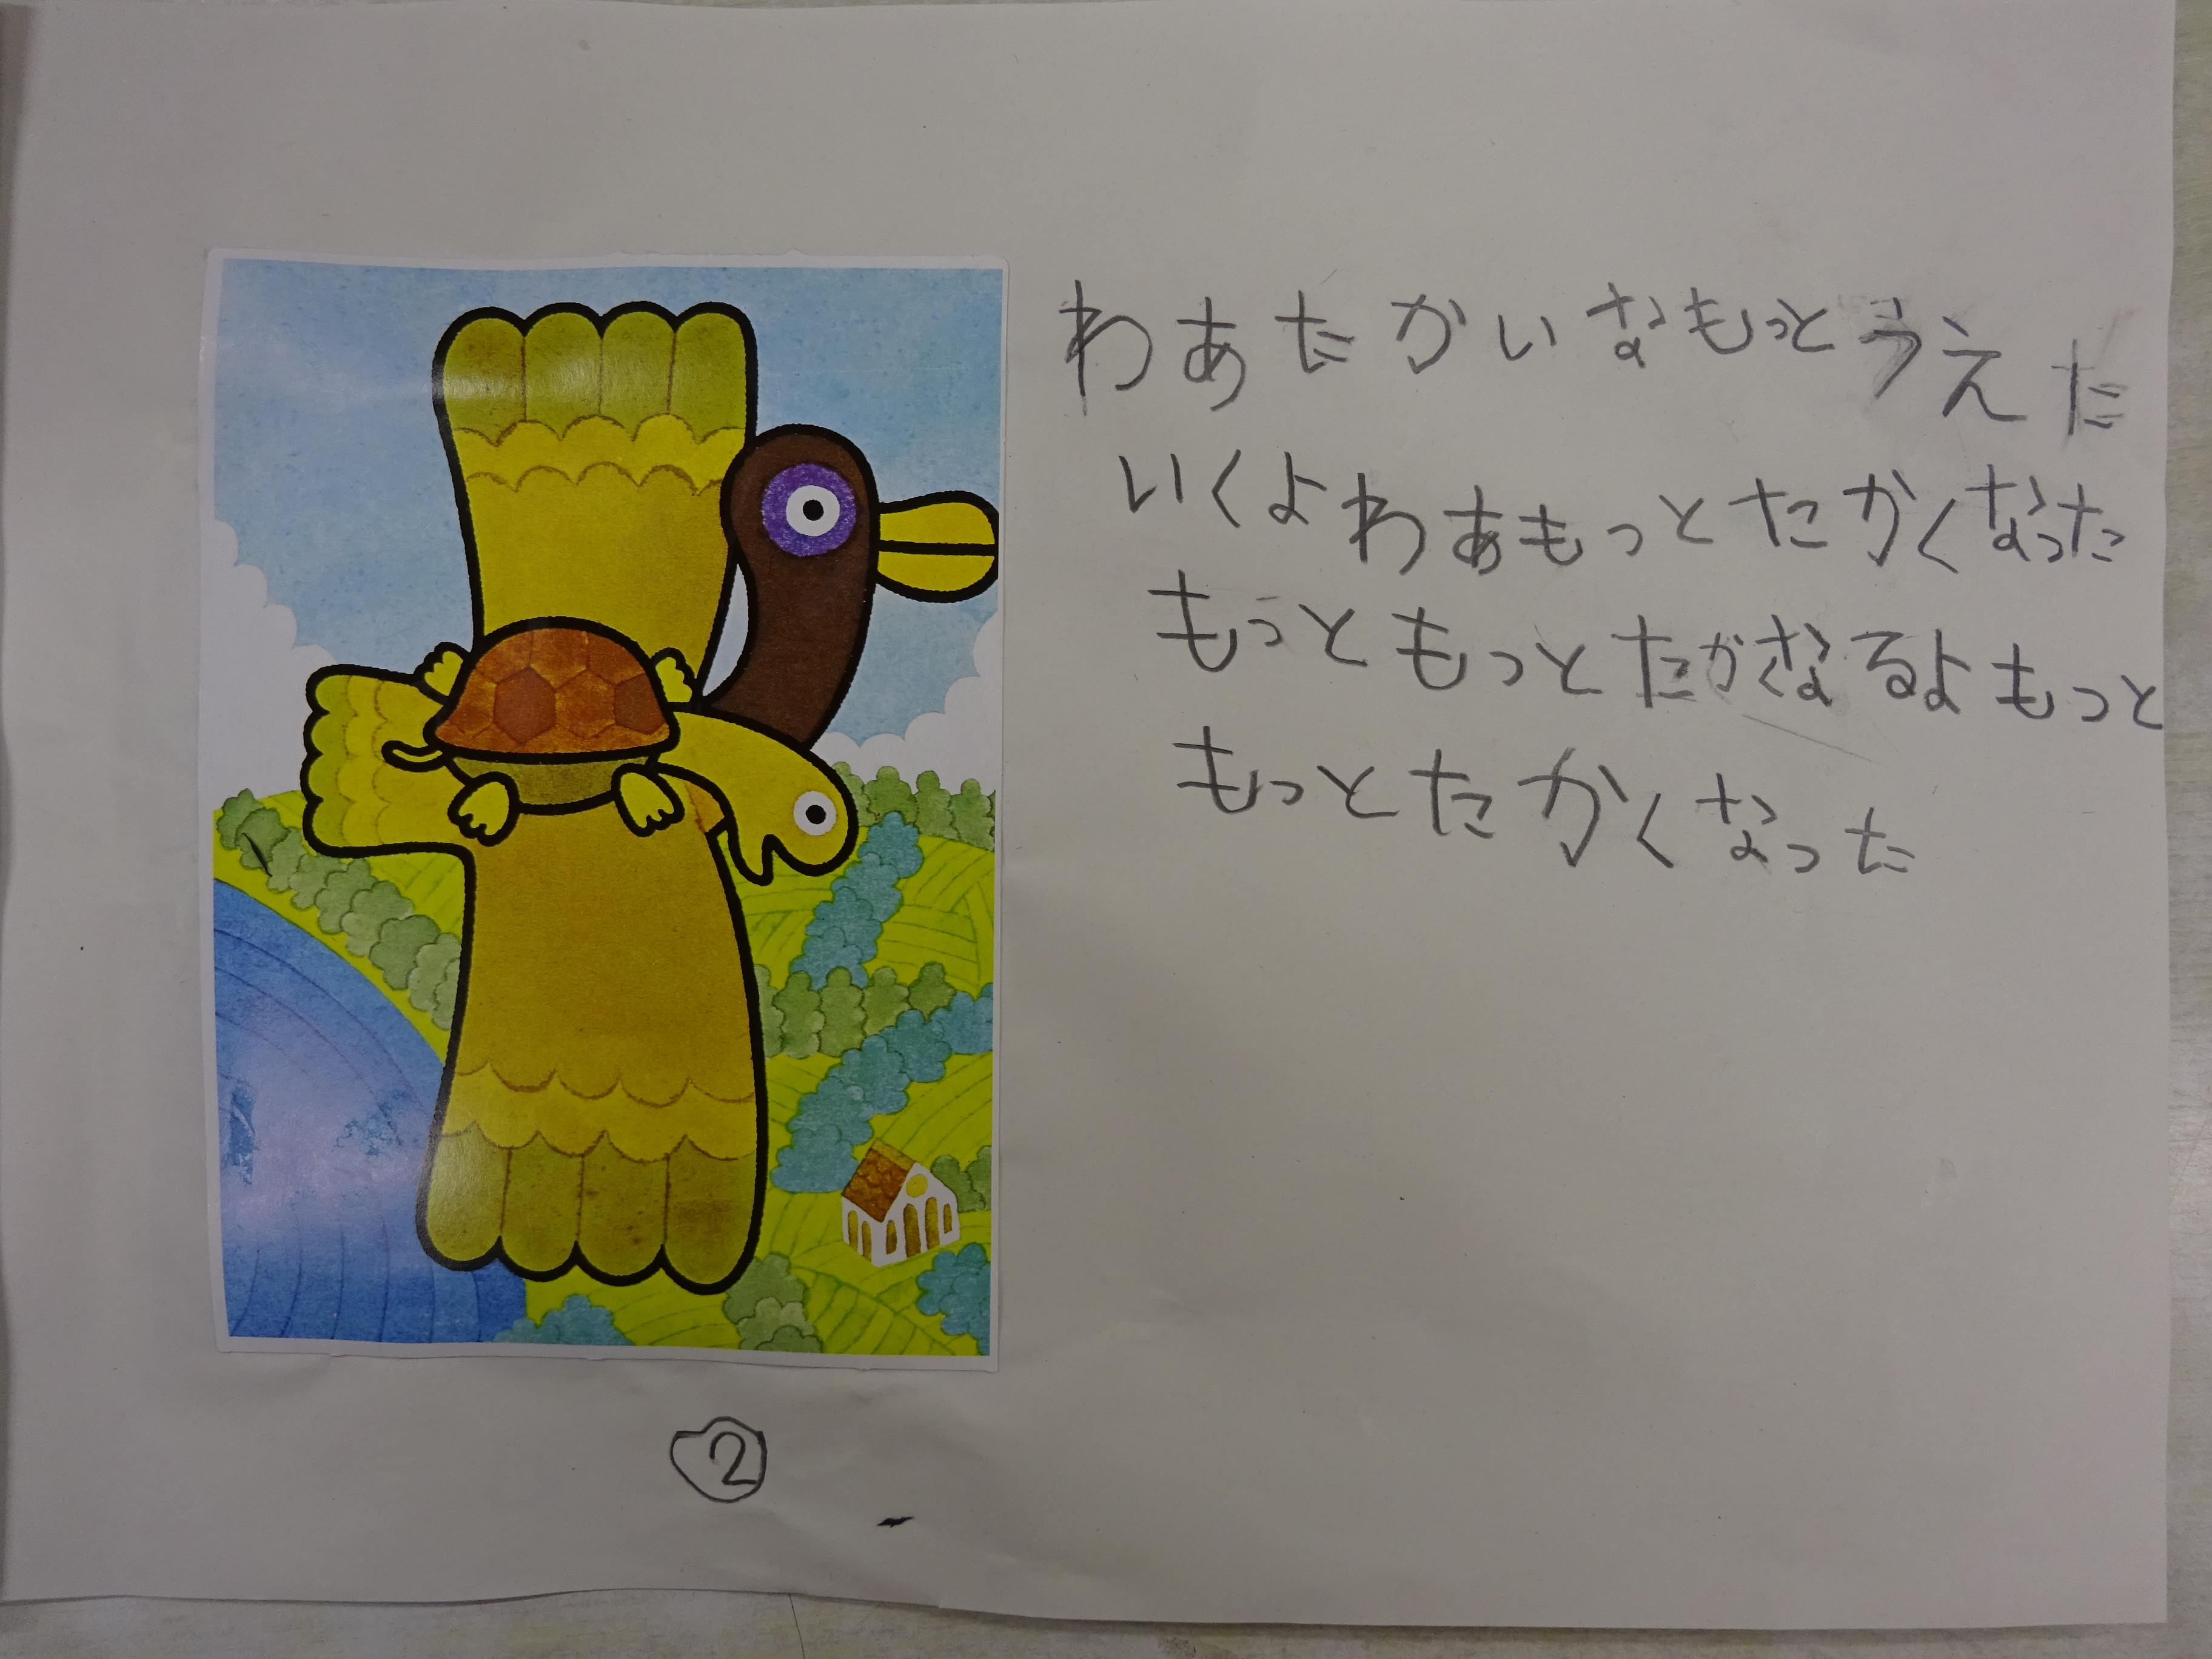 わあたかいなもっとうえだ
いくよわあもっとたかくなった
もっともっとたかくなるよもっと
もっとたかくなった
②